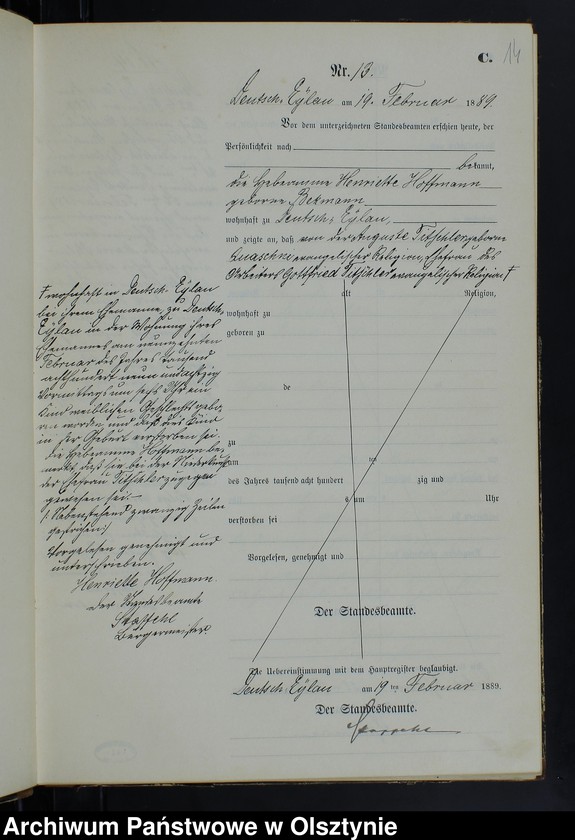 C. 14
Nr. 13.
Deutsch-Eylau am 19. Februar 1889.
Vor dem unterzeichneten Standesbeamten erschien heute, der
Persönlichkeit nach
bekannt,
die Hebeamme Henriette Hoffmann
geborne Bekmann
wohnhaft zu Deutsch-Eylau,
und zeigte an, daß von der Auguste Titschler geborne
evangelischer Religion, Ehefrau des
Arbeiters Gottfried Titschler evangelischer Religion †
alt Religion,
wohnhaft zu
geboren zu
de
zu
am ten
des Jahres tausend acht hundert zig und
s um Uhr
verstorben sei
Vorgelesen, genehmigt und
Der Standesbeamte.
† wohnhaft in Deutsch. Eylau
bei ihrem Ehemanne, zu Deutsch,
Eylau in der Wohnung ihres
Ehemannes am neunzehnten
Februar des Jahres tausend
achthundert neun und achtzig
Vormittags um sechs Uhr ein
Kind weiblichen Geschlechts gebo-
ren worden und daß dies Kind
in der Geburt verstorben sei.
Die Hebeamme Hoffmann be-
merkt, daß sie bei der Niederkunft
der Ehefrau Titschler zugegen
gewesen sei.—
/: Nebenstehend zwanzig Zeilen
gestrichen :/
Vorgelesen genehmigt und
unterschrieben.
Henriette Hoffmann
Der Standesbeamte
Staffehl
Bürgermeister
Die Uebereinstimmung mit dem Hauptregister beglaubigt.
Deutsch-Eylau am 19 ten Februar 1889.
Der Standesbeamte.
Staffehl
Archiwum Państwowe w Olsztynie